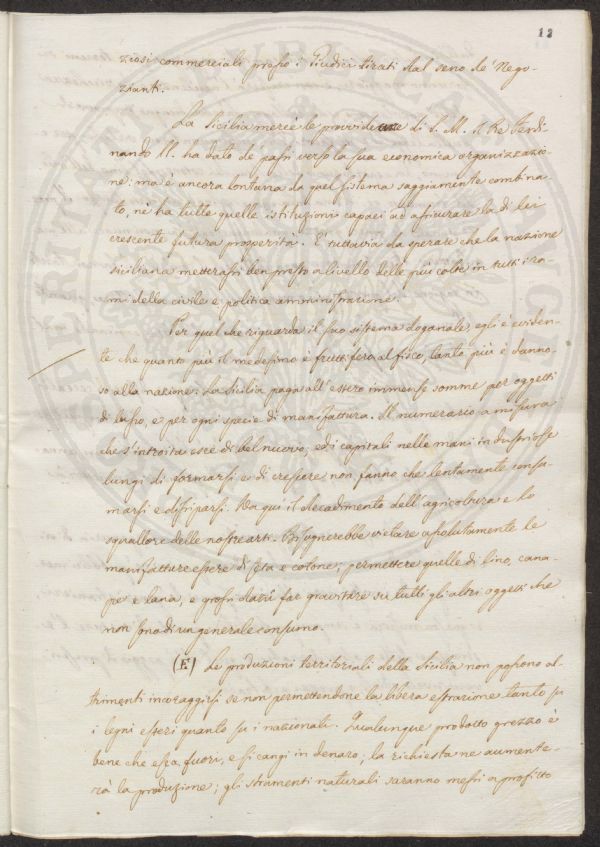 12
ziosi commerciali presso i Giudici tirati dal seno de' Nego-
zianti.
La Sicilia mercè le provvide di S. M. il Re Ferdi-
nando II. ha dato de' passi verso la sua economica organizzazio-
ne; ma è ancora lontana da quel sistema saggiamente combina-
to, nè ha tutte quelle istituzioni capaci ad assicurare la di lei
crescente futura prosperità. E' tuttavia da sperare che la nazione
siciliana metterassi ben presto a livello delle più colte in tutti i ra-
mi della civile e politica amministrazione.
Per quel che riguarda il suo sistema doganale, egli è eviden-
te che quanto più il medesimo è fruttifero al fisco, tanto più è danno-
so alla nazione. La Sicilia paga all'estero immense somme per oggetti
di lusso, e per ogni specie di manifattura. Il numerario a misura
che s'introita esce di bel nuovo, ed i capitali nelle mani industriose
lungi di formarsi e di crescere non fanno che lentamente consu-
marsi e dissiparsi. Da qui il decadimento dell'agricoltura e lo
squallore delle nostre arti. Bisognerebbe vietare assolutamente le
manifatture estere di seta e cotone; permettere quelle di lino, cana-
pe e lana, e grossi dazî far gravitare su tutti gli altri oggetti che
non sono di un generale consumo.
(E) Le produzioni territoriali della Sicilia non possono al-
trimenti incoraggirsi se non permettendone la libera estrazione tanto su
i legni esteri quanto su i nazionali. Qualunque prodotto grezzo è
bene che esca fuori, e si cangi in denaro; la richiesta ne aumente-
rà la produzione; gli strumenti naturali saranno messi a profitto